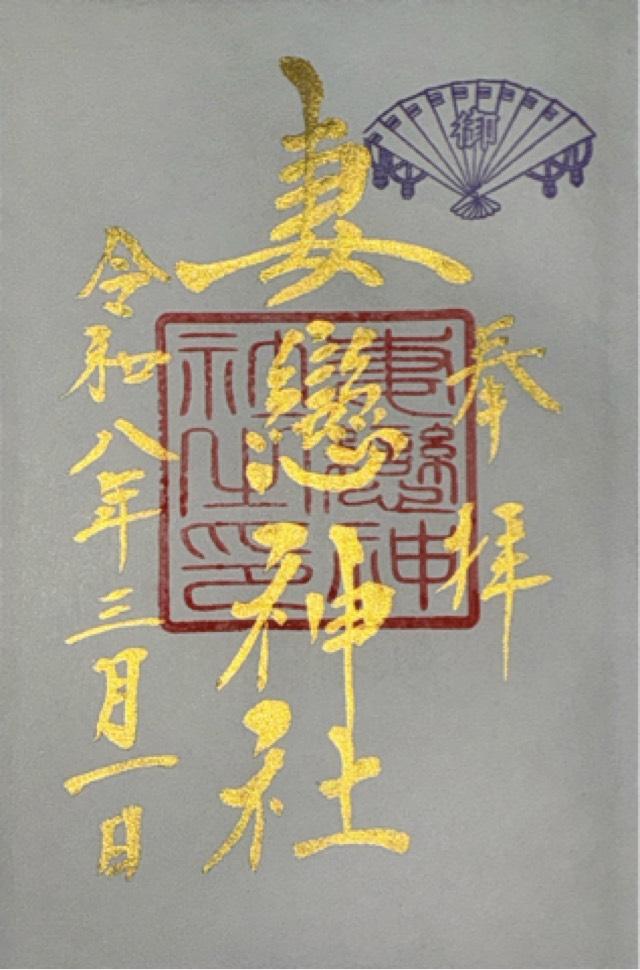 奉拝
妻戀神社
令和八年三月一日
御
妻戀神
社之印